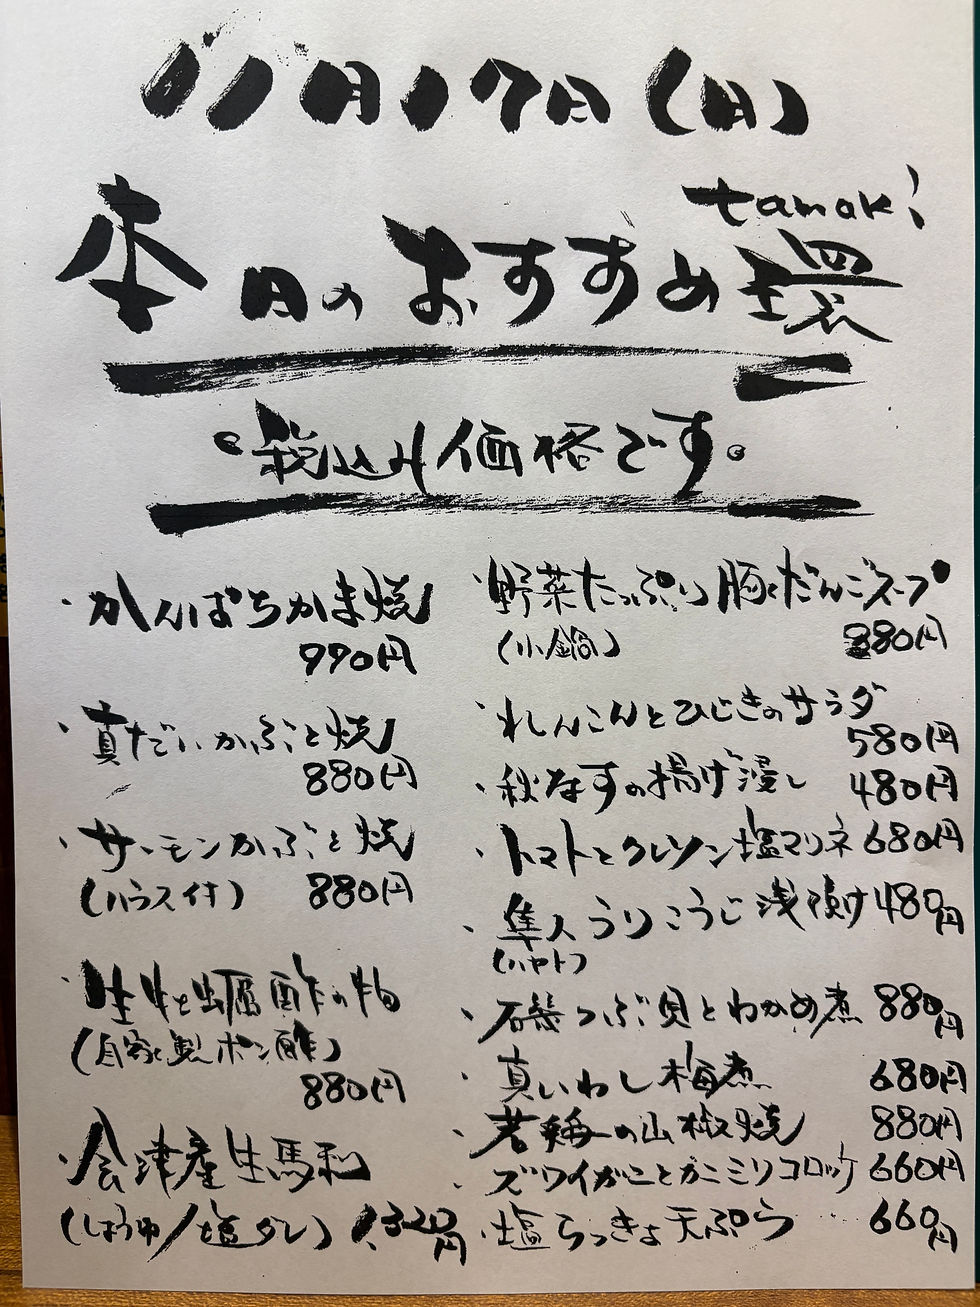 11月17日(日)
tamaki
本日のおすすめ環
・税込み価格です。
・かんぱちかま焼
990円
・真だいかぶと焼
880円
・サーモンかぶと焼
(ハラス付) 880円
・生牡蠣酢の物
(自家製ポン酢)
880円
・会津産生馬刺
(しょうゆ/塩ダレ) 1,320円
・野菜たっぷり豚だんごスープ
(小鍋) 880円
・れんこんとひじきのサラダ
580円
・秋なすの揚げ浸し 480円
・トマトとクレソン塩マリネ 680円
・隼人うりこうじ浅漬け 480円
(ハヤト)
・磯つぶ貝とわかめ煮 880円
・真いわし梅煮 680円
・若鶏の山椒焼 880円
・ズワイガニとカニミソコロッケ 660円
・塩らっきょ天ぷら 660円